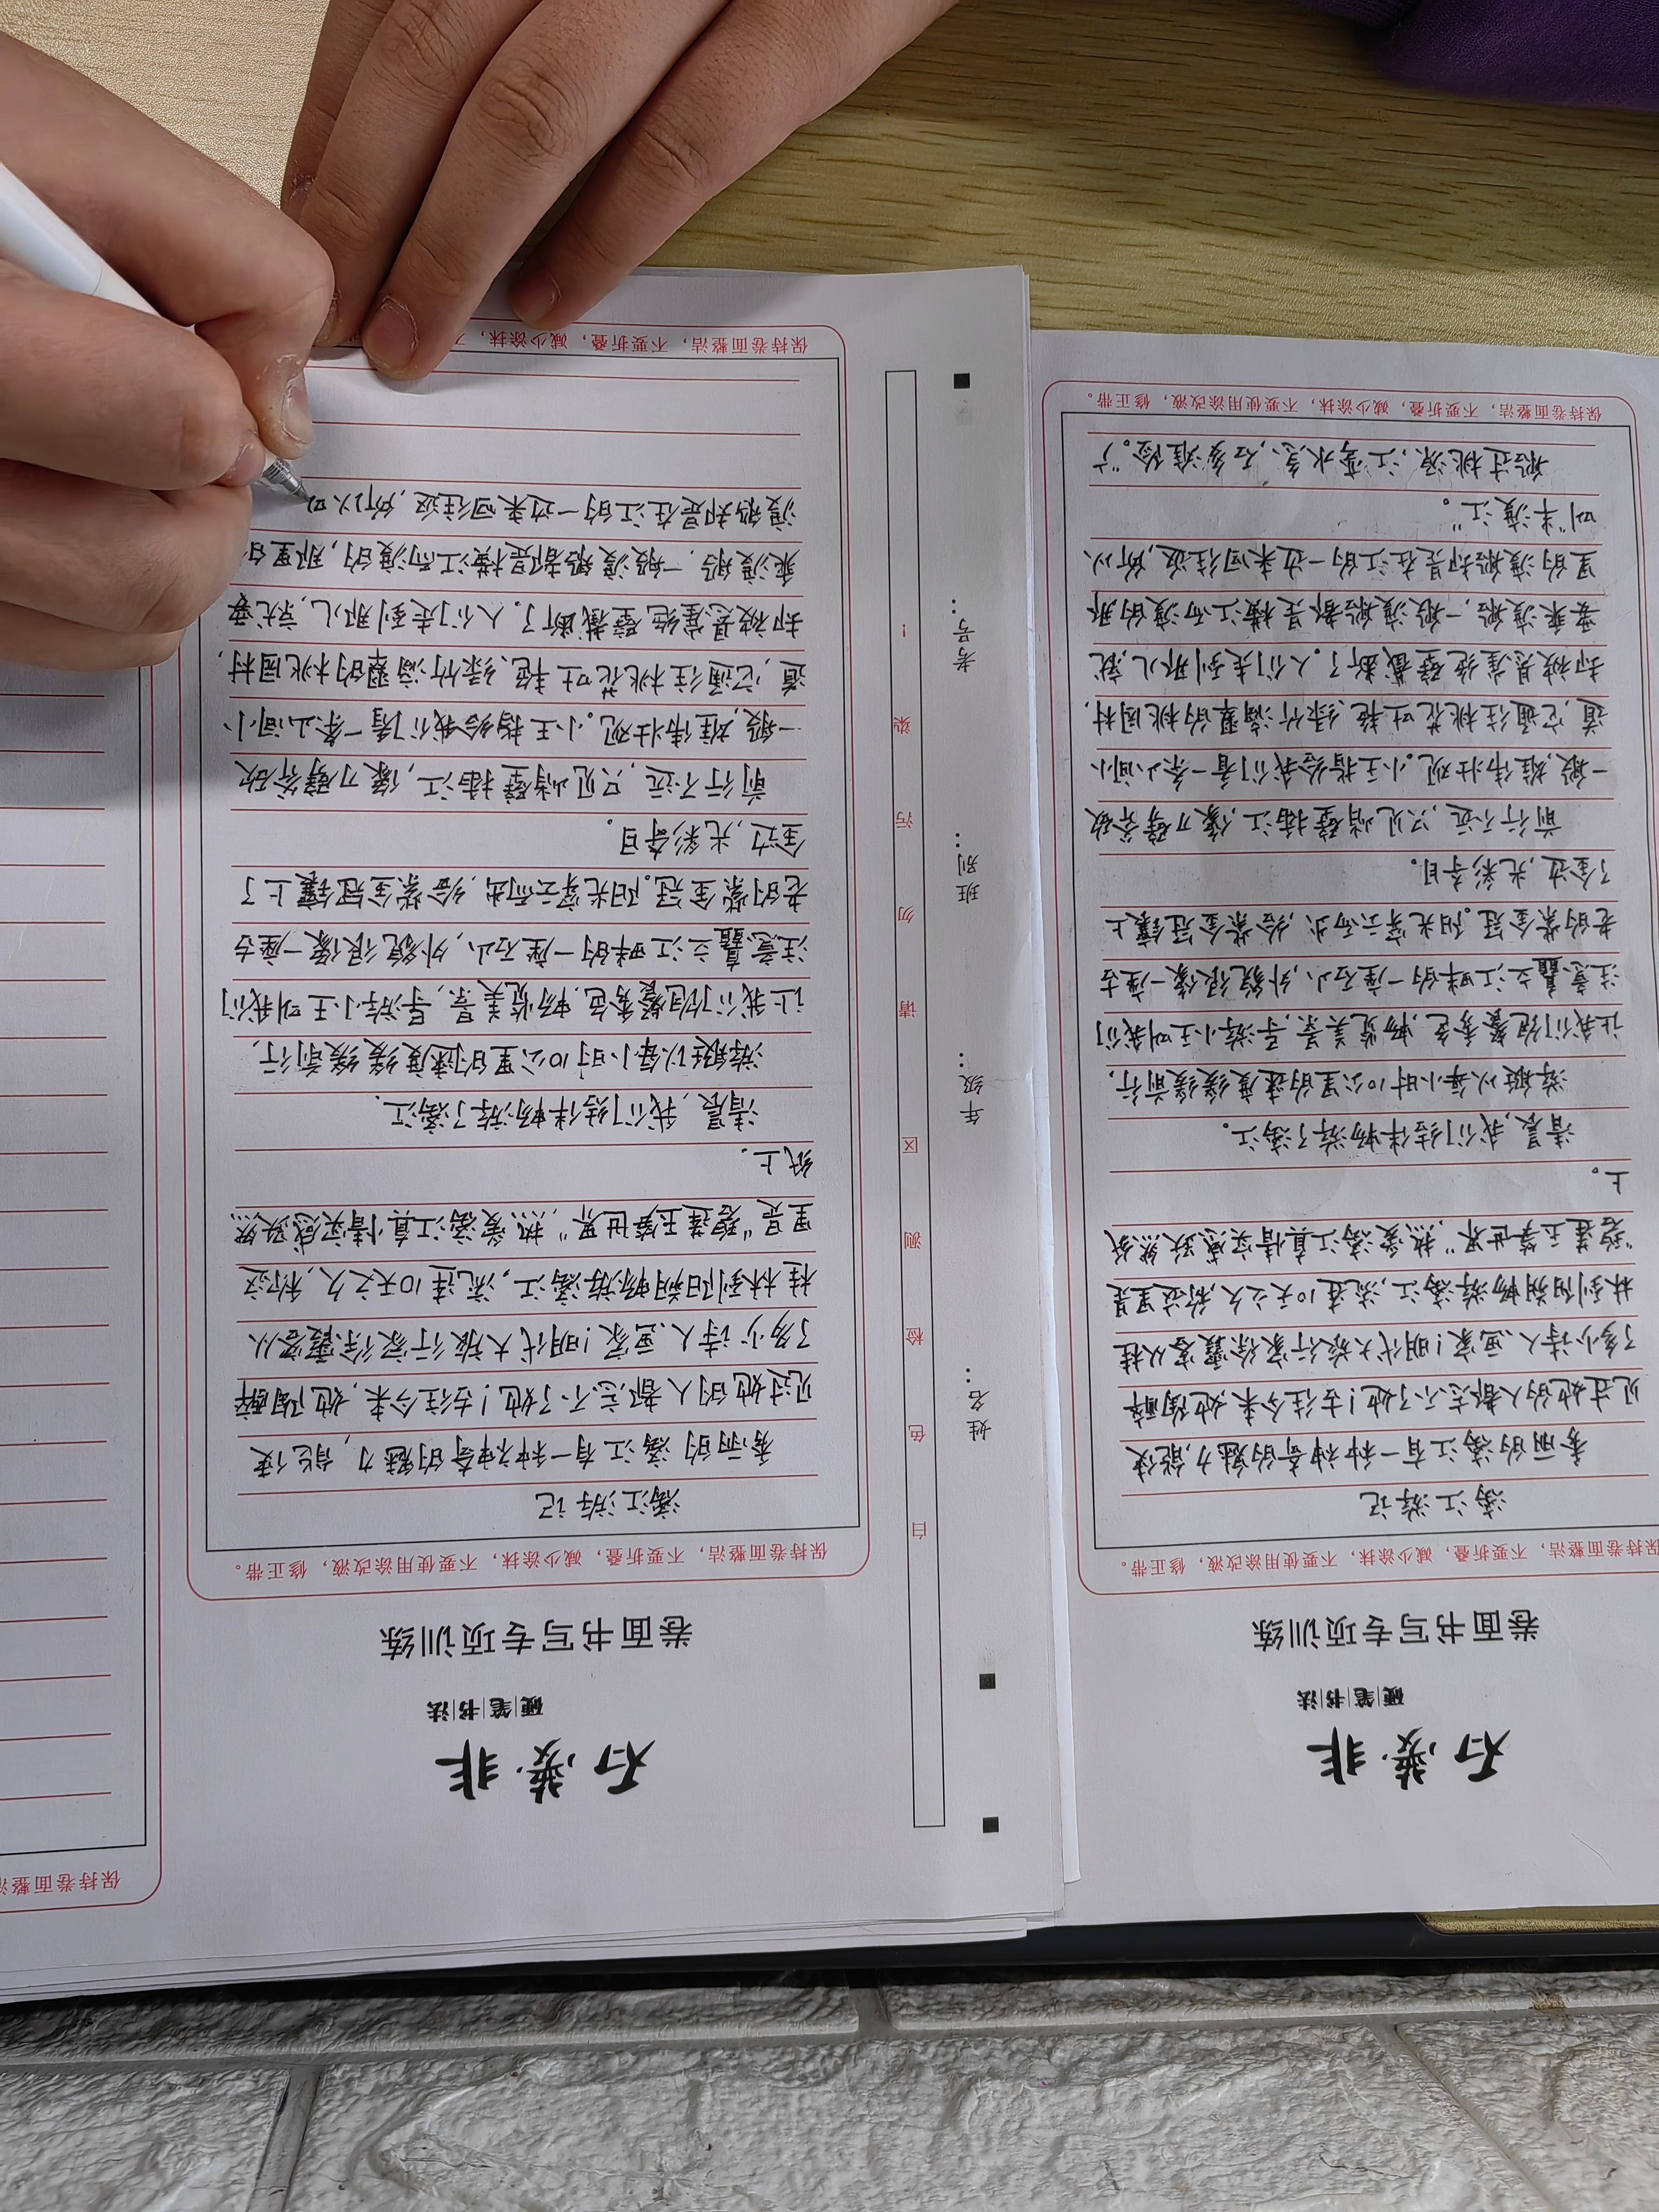 硬笔书法
卷面书写专项训练
保持卷面整洁,不要折叠,减少涂抹,不要使用涂改液,修正带。
漓江游记
秀丽的漓江有一种神奇的魅力,能使
见过她的人都忘不了她!古往今来,她陶醉
了多少诗人、画家!明代大旅行家徐霞客从桂
林到阳朔畅游漓江,流连10天之久,称这里是
“碧莲玉笋世界”,热爱漓江真情实感跃然纸
上。
清晨,我们结伴畅游了漓江。
游艇以每小时10公里的速度缓缓前行,
让我们饱餐秀色,畅览美景,导游小王叫我们
注意矗立江畔的一座石山,外貌很像一座古
老的紫金冠。阳光穿云而出,给紫金冠镶上
了金边,光彩夺目。
前行不远,只见峭壁插江,像刀劈斧砍
一般,雄伟壮观。小王指给我们看一条山间小
道,它通往桃花吐艳、绿竹滴翠的桃园村,
却被悬崖绝壁截断了。人们走到那儿,就
要乘渡船,一般渡船都是横江而渡的那
里的渡船却是在江的一边来回往返,所以
叫“半渡江”。
船过桃源,江弯水急,石多滩险。”
保持卷面整洁,不要折叠,减少涂抹,不要使用涂改液,修正带。
姓名:
年级:
班别:
考号:
白色检测区请勿污染!
硬笔书法
卷面书写专项训练
保持卷面整洁,不要折叠,减少涂抹,不要使用涂改液,修正带。
漓江游记
秀丽的漓江有一种神奇的魅力,能使
见过她的人都忘不了她!古往今来,她陶醉
了多少诗人、画家!明代大旅行家徐霞客从
桂林到阳朔畅游漓江,流连10天之久,称这
里是“碧莲玉笋世界”,热爱漓江真情实感跃然
纸上。
清晨,我们结伴畅游了漓江。
游艇以每小时10公里的速度缓缓前行,
让我们饱餐秀色,畅览美景,导游小王叫我们
注意矗立江畔的一座石山,外貌很像一座古
老的紫金冠。阳光穿云而出,给紫金冠镶上了
金边,光彩夺目。
前行不远,只见峭壁插江,像刀劈斧砍
一般,雄伟壮观。小王指给我们看一条山间小
道,它通往桃花吐艳、绿竹滴翠的桃园村,
却被悬崖绝壁截断了。人们走到那儿,就要
乘渡船,一般渡船都是横江而渡的,那里的
渡船却是在江的一边来回往返,所以
保持卷面整洁,不要折叠,减少涂抹,
保持卷面整洁